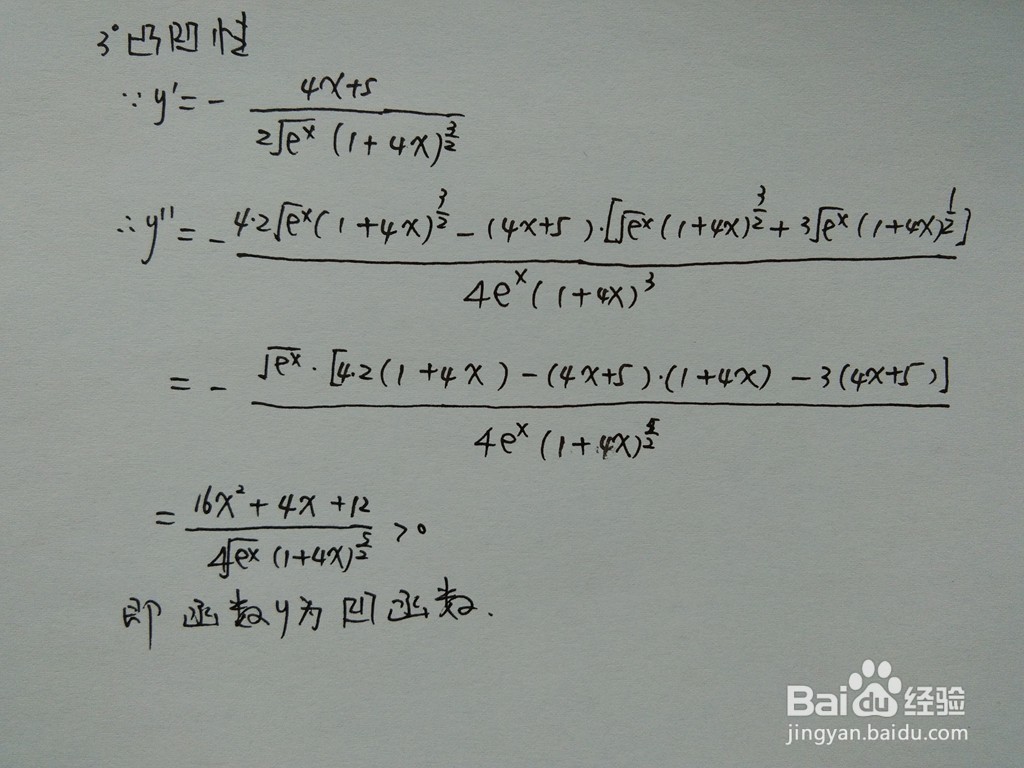 3°凸凹性
∵ y′ = - (4x+5) / (2√e^x (1+4x)^(3/2))
∴ y″ = - (4·2√e^x (1+4x)^(3/2) - (4x+5)·[√e^x (1+4x)^(3/2) + 3√e^x (1+4x)^(1/2)]) / (4e^x (1+4x)^3)
= - (√e^x · [4·2(1+4x) - (4x+5)·(1+4x) - 3(4x+5)]) / (4e^x (1+4x)^(5/2))
= (16x²+4x+12) / (4√e^x (1+4x)^(5/2)) >0
即函数y为凹函数.
Baidu经验
jingyan.baidu.com